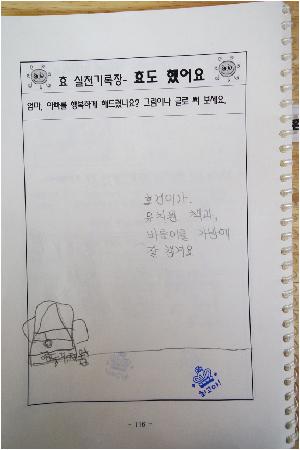 효 실천기록장- 효도 했어요
엄마, 아빠를 행복하게 해드렸나요? 그림이나 글로 써 보세요.
효건이가.
유치원 책과,
바둑이를 가방에
잘 챙겨요
최고야!
- 116 -